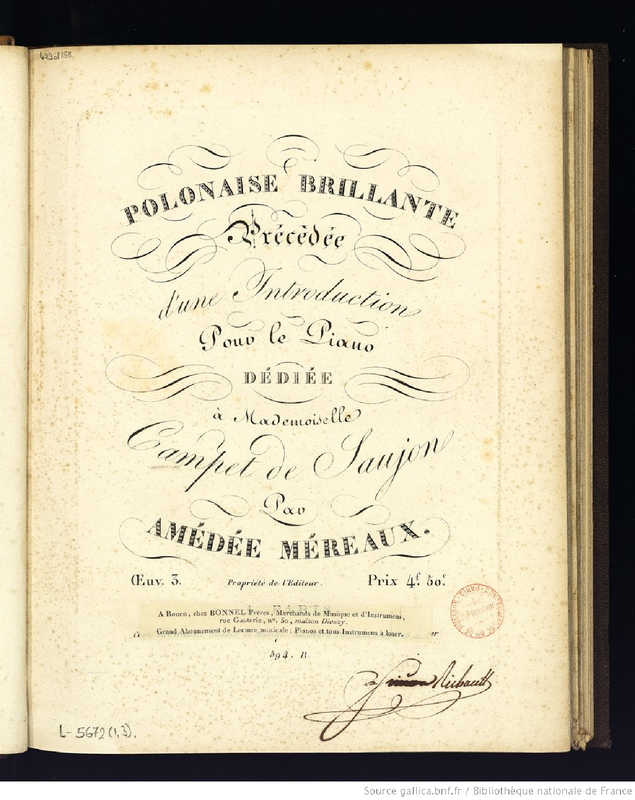 POLONAISE BRILLANTE
Précèdée
d'une Introduction
Pour le Piano
DÉDIÉE
à Mademoiselle
Campet de Saujon
Par
AMÉDÉE MÉREAUX.
Œuv. 3. Propriété de l'Editeur. Prix 4f 50c
A Rouen, chez BONNEL Frères, Marchands de Musique et d'Instrumens,
rue Ganterie, nº. 50, maison Dieuzy.
Grand Abonnement de Lecture musicale; Pianos et tous Instrumens à louer.
594. R.
Richault
L-5672 (1,3).
Source gallica.bnf.fr / Bibliothèque nationale de France